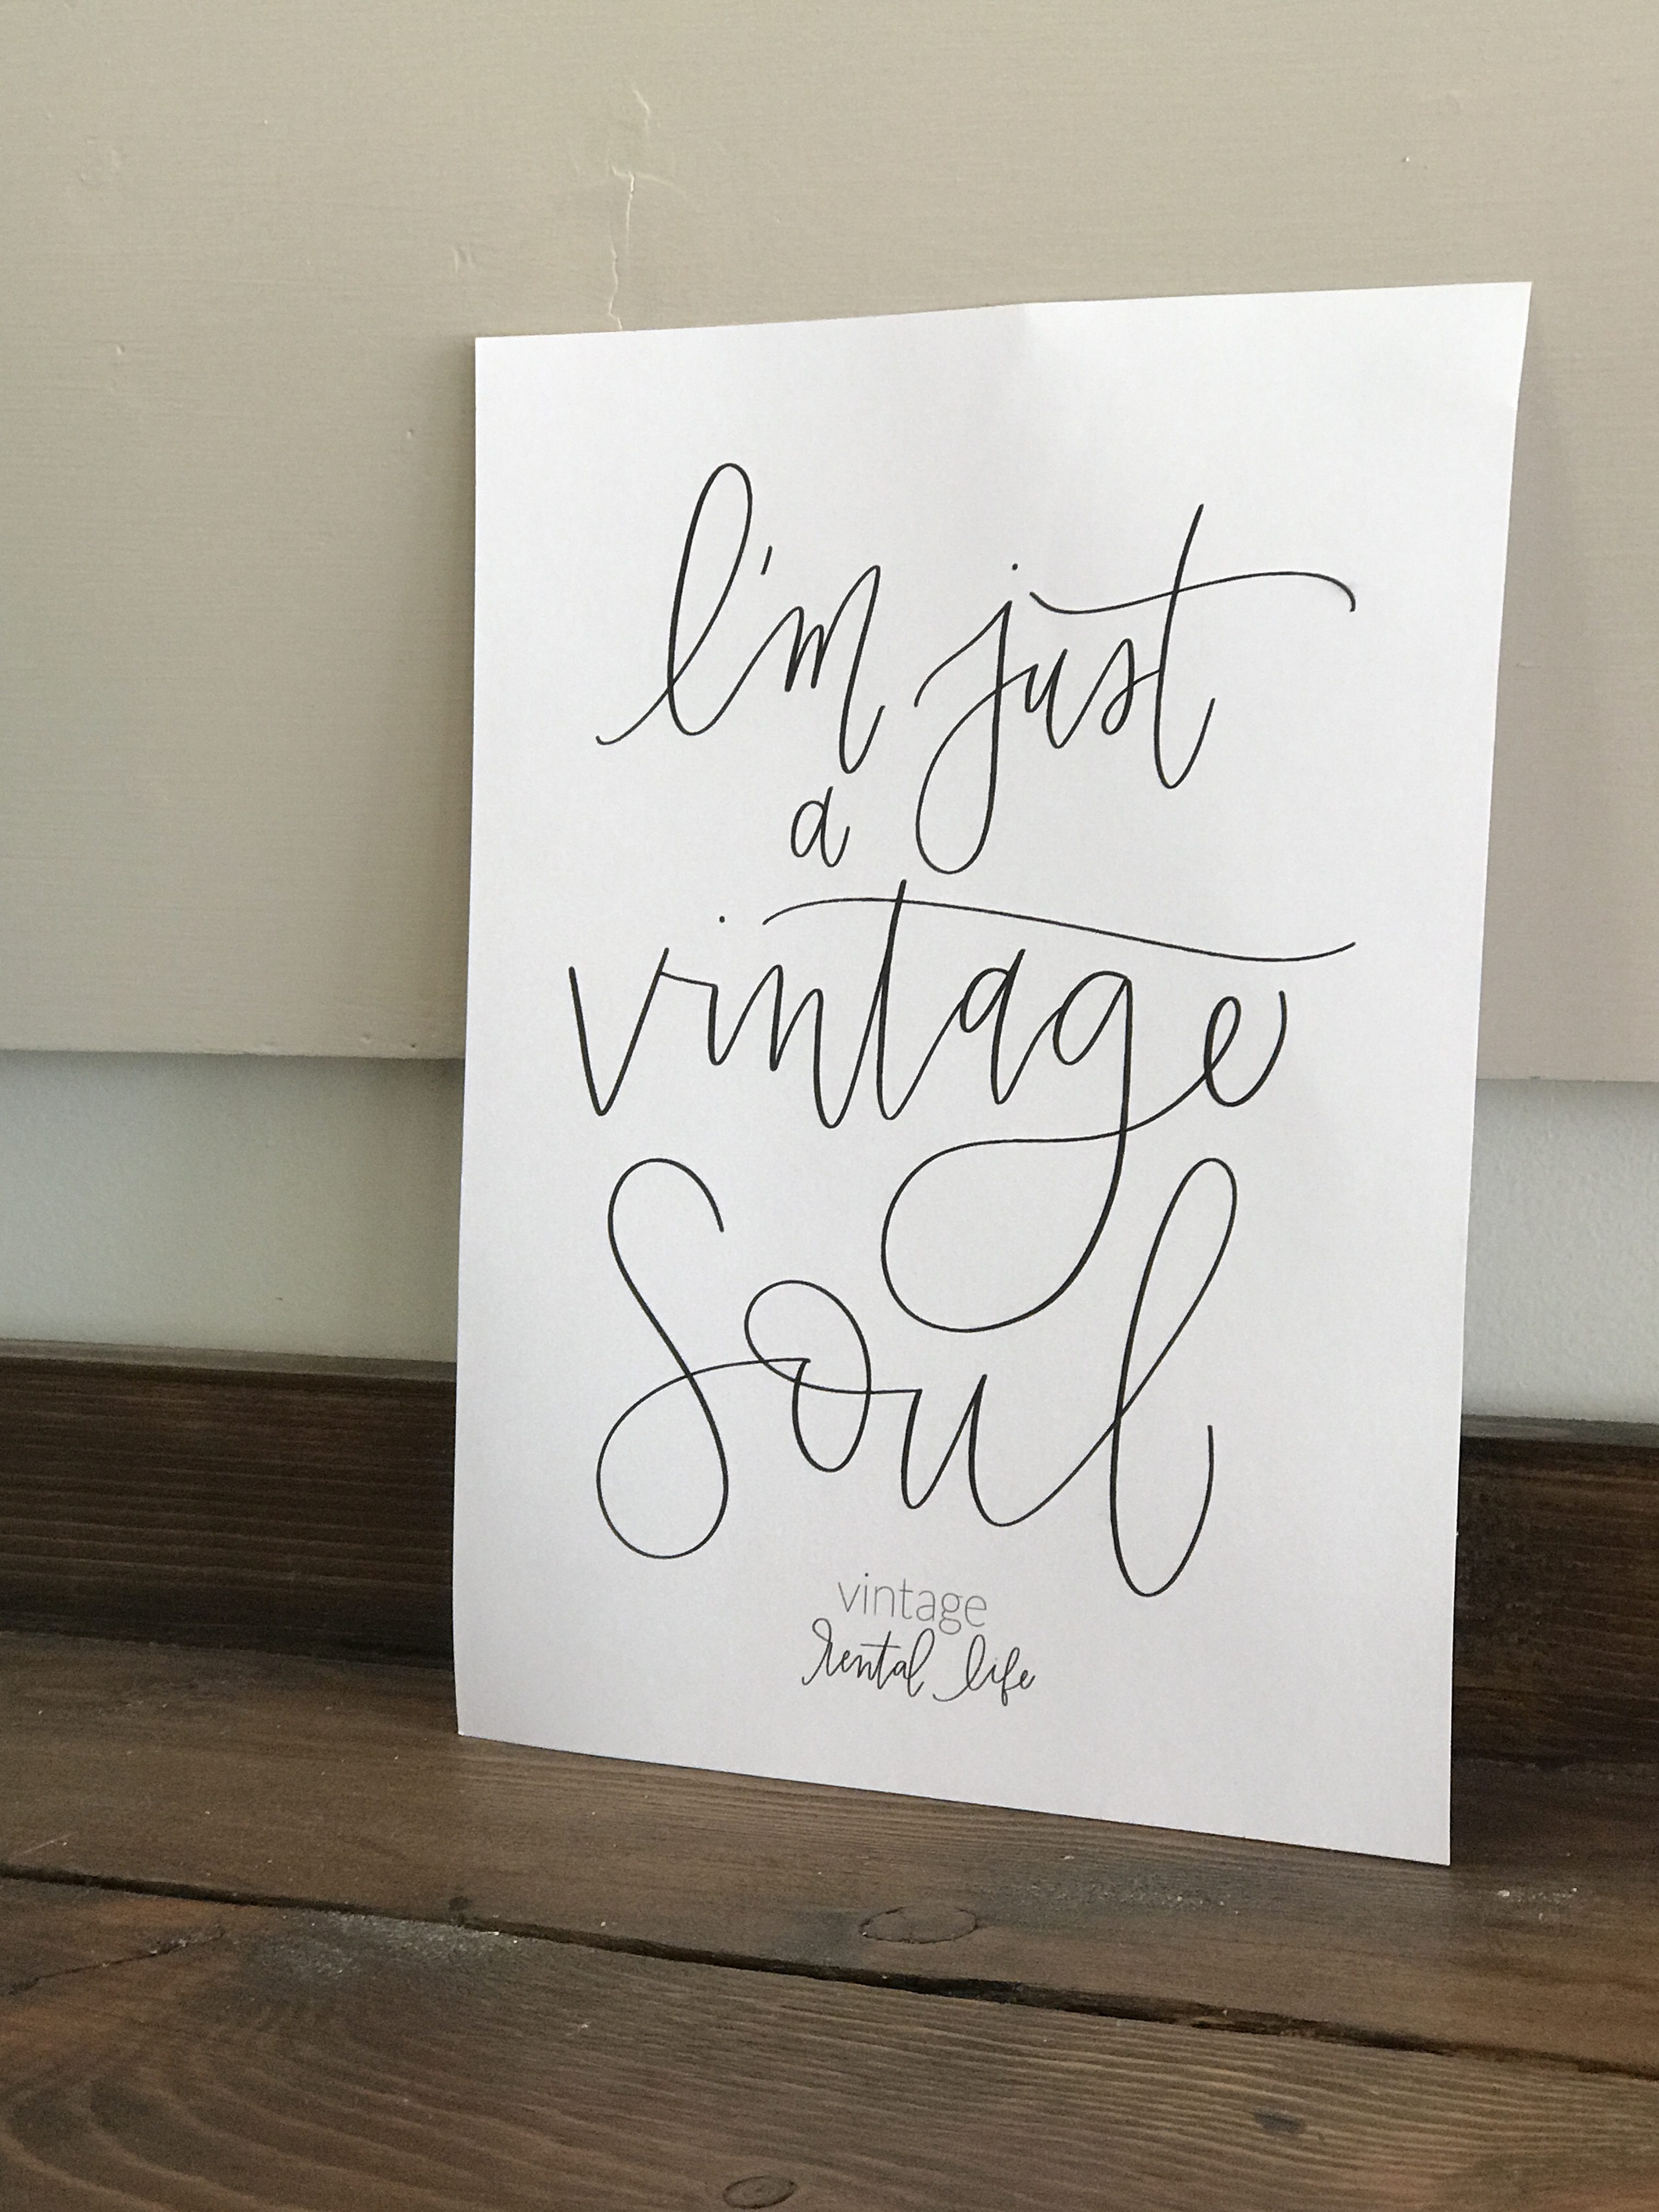 I'm just
a
vintage
Soul
vintage
rental life